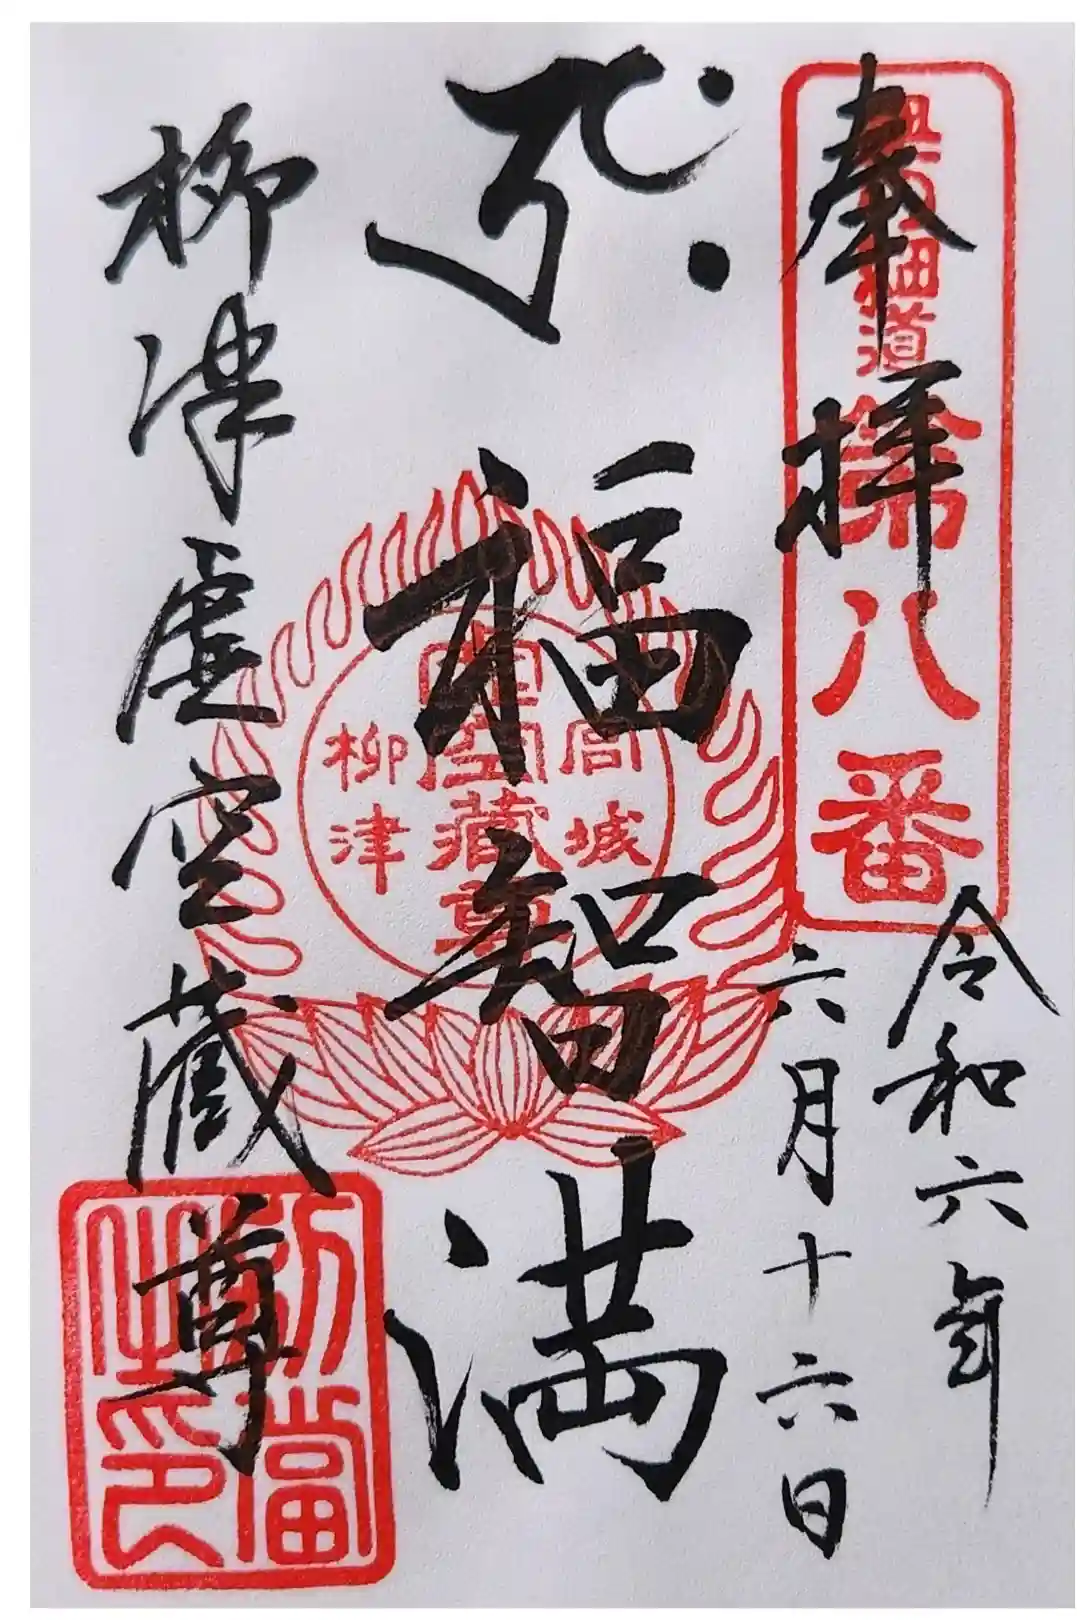 奉拝
細道
第八番
令和六年
六月十六日
福智満
宮城
虚空藏尊
柳津
柳津虚空蔵尊